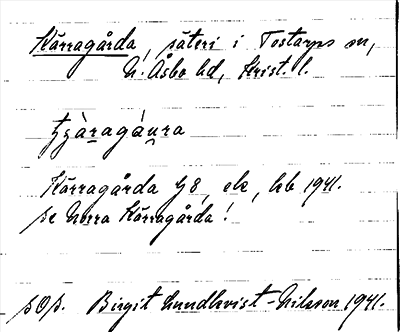 Kärragårda, säteri i Tostarps sn,
N. Åsbo hd, Krist. l.
Kärragårda G8, ek, hb 1941.
se Norra Kärragårda!
sOs. Birgit Lundkvist-Nilsson 1941.